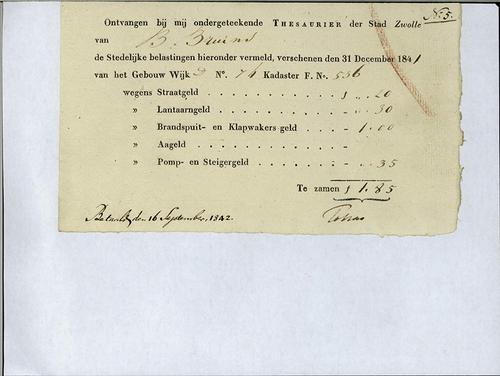 No. 5.
Ontvangen bij mij ondergeteekende THESAURIER der Stad Zwolle
van B. Bruins
de Stedelijke belastingen hieronder vermeld, verschenen den 31 December 1841
van het Gebouw Wijk No. 74 Kadaster F. No. 536
wegens Straatgeld . . . . . . . . . . ƒ „ 20
» Lantaarngeld . . . . . . . . . - „ 30
» Brandspuit- en Klapwakersgeld . . . . . - 1.00
» Aageld . . . . . . . . . . . -
» Pomp- en Steigergeld . . . . . . - „ 35
Te zamen ƒ 1.85
Betaald den 16 September 1842.